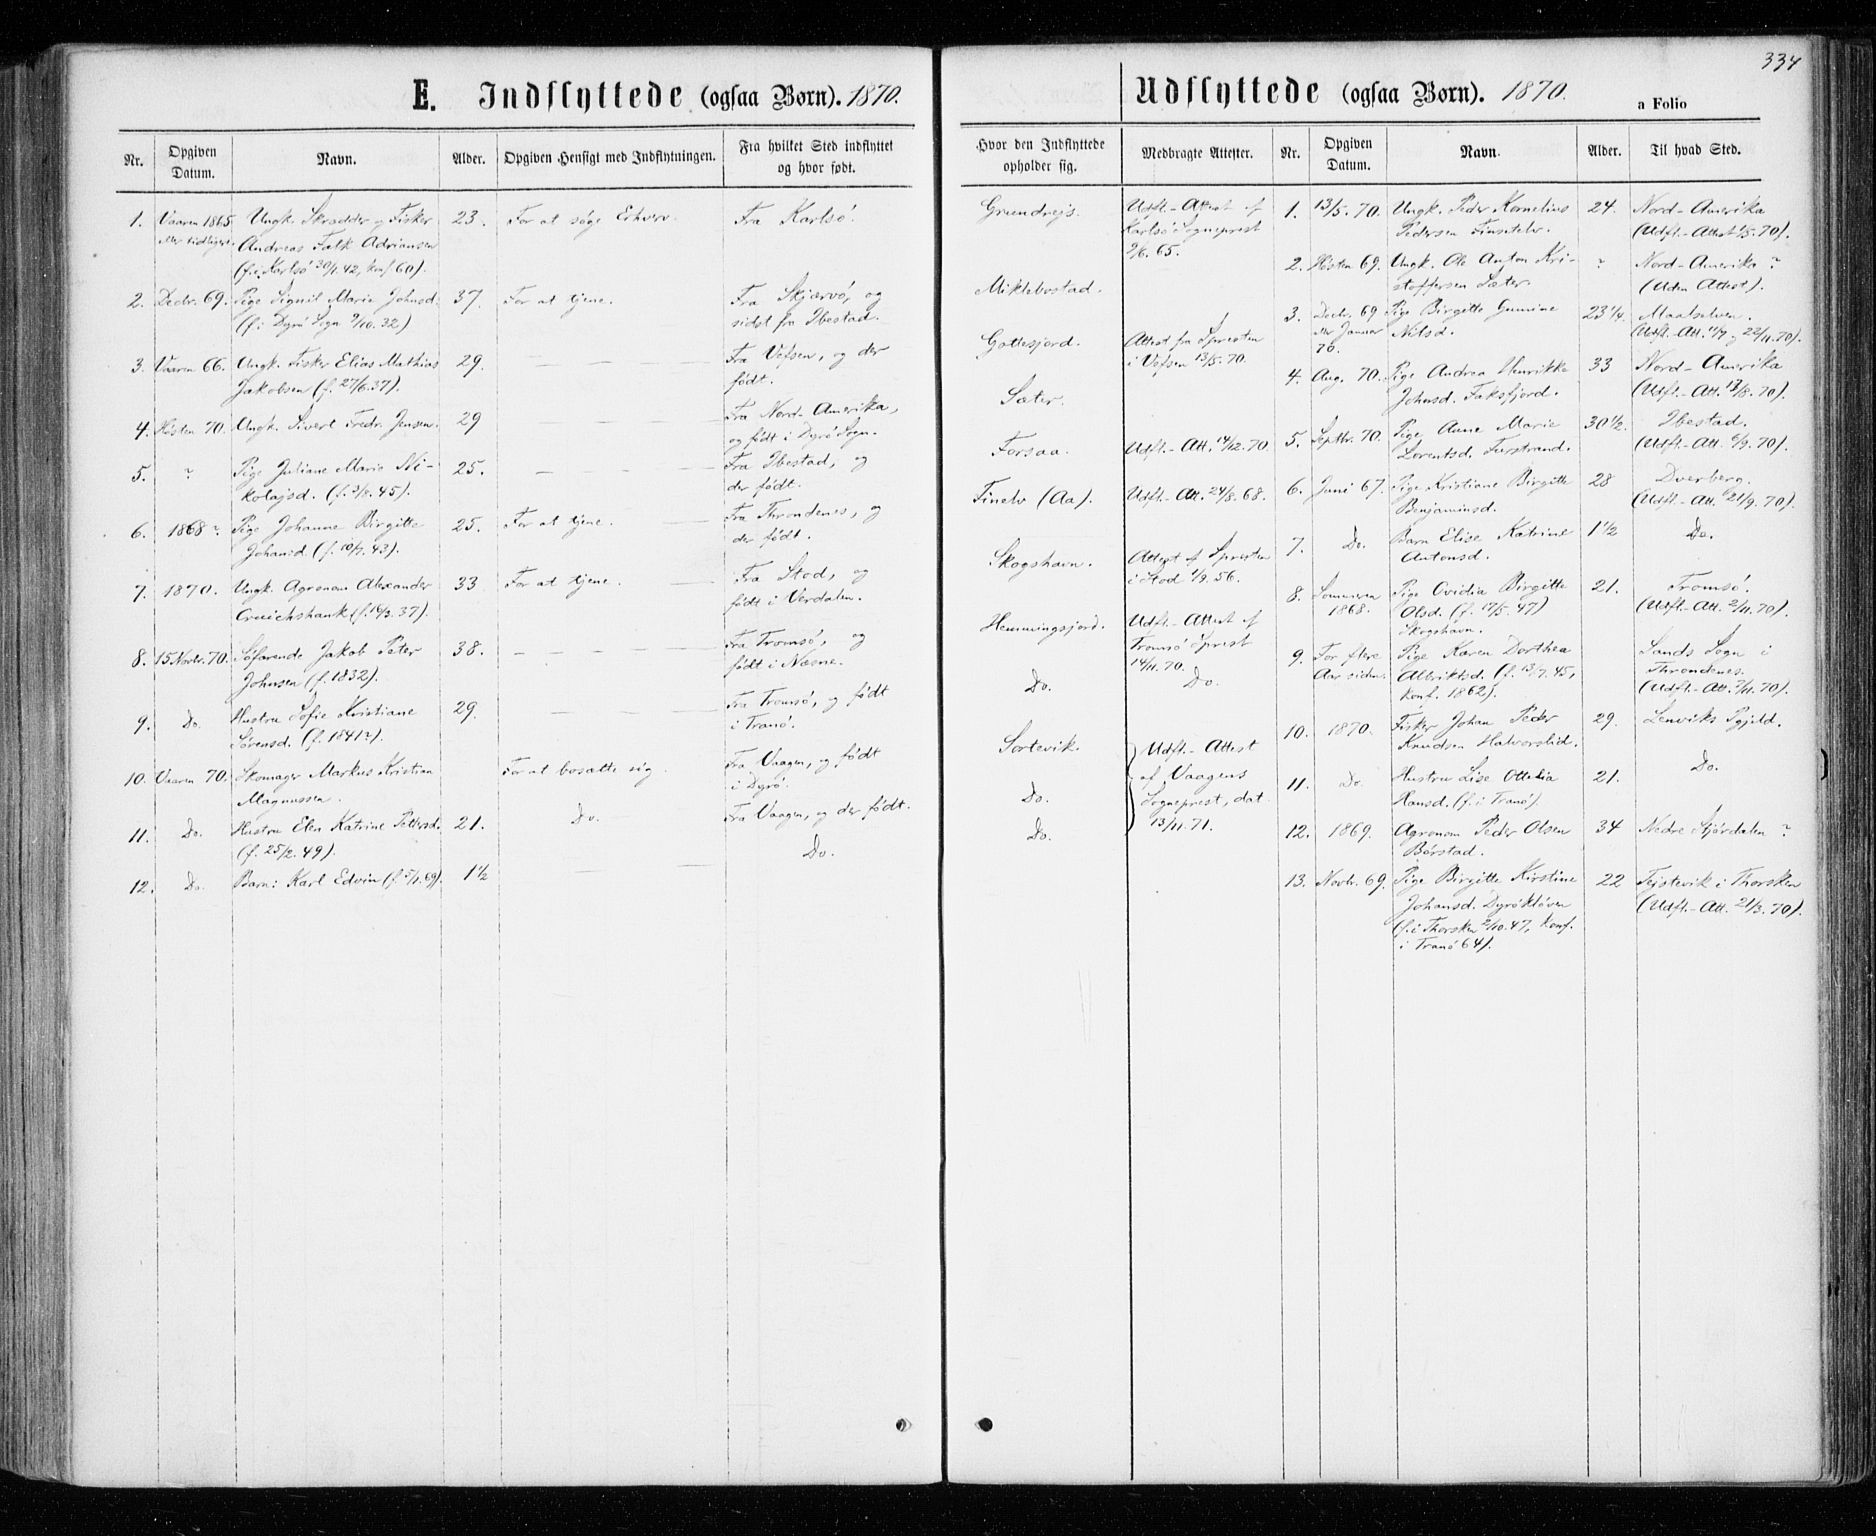 334
E. Indflyttede (ogsaa Børn). 1870.
Nr. Opgiven Datum. Navn. Alder. Opgiven Hensigt med Indflytningen. Fra hvilket Sted indflyttet og hvor født.
1. Vaaren 1865 Ungk. Skrædder og Fisker 23. For at søge Erhverv. Fra Karlsø.
eller tidligere. Andreas Falk Adriansen
(f. i Karlsø 30/1. 42, konf 60).
2. Decbr. 69. Pige Signil Marie Johnsd. 37. For at tjene. Fra Skjærvø, og
(f. i Dyrø Sogn 9/10. 32) sidst fra Ibestad.
3. Vaaren 66. Ungk. Fisker Elias Mathias 29. — — — Fra Vefsen, og der
Jakobsen (f. 27/6. 37). født.
4. Høsten 70. Ungk. Sivert Fredr. Jensen. 29 Fra Nord-Amerika,
og født i Dyrø Sogn.
5. ? Pige Juliane Marie Ni- 25. — — — Fra Ibestad, og
kolajsd. (f. 3/8. 45). der født.
6. 1868? Pige Johanne Birgitte 25. For at tjene. — Fra Throndenes, og
Johansd. (f. 10/7. 43). der født.
7. 1870. Ungk. Agronom Alexander 33 For at tjene. — Fra Stod, og
Cruichshank (f. 16/3. 37). født i Verdalen.
8. 15 Novbr. 70. Søfarende Jakob Peter 38. — — — Fra Tromsø, og
Johnsen (f. 1832). født i Næsne.
9. Do. Hustru Sofie Kristiane 29. — — — Fra Tromsø, og født
Sørensd. (f. 1841?). i Tranø.
10. Vaaren 70. Skomager Markus Kristian For at bosætte sig. Fra Vaagen, og født
Magnussen. i Dyrø.
11. Do. Hustru Elen Katrine Pedersd. 21. Do. — Fra Vaagen, og der født.
(f. 25/2. 49).
12. Do. Barn: Karl Edvin (f. 5/1. 69). 1 1/2 — — Do.
Udflyttede (ogsaa Børn). 1870. a Folio
Hvor den Indflyttede opholder sig. Medbragte Attester. Nr. Opgiven Datum. Navn. Alder. Til hvad Sted.
Grundrejs. Udfl.-Attest af
Karlsø Sogneprest
2/6. 65.
Miklebostad.
Gottesjord. Attest fra Spresten
i Vefsen 13/5. 70.
Sæter.
Forsaa. Udfl.-Att. 14/12. 70.
Finelv (Aa). Udfl.-Att. 24/8. 68.
Skogshavn. Attest af Spresten
i Stod 1/9. 56.
Hemmingsjord. Udfl.-Attest af
Tromsø Sprest
14/11. 70.
Do. Do.
Sørtevik. Udfl.-Attest
af Vaagens
Do. Sogneprest, dat.
13/11. 71.
Do.
1. 13/5. 70. Ungk. Peder Kornelius 24. Nord-Amerika
Pedersen Finsetelv. (Udfl.-Attest 1/5. 70).
2. Høsten 69. Ungk. Ole Anton Kri- ? Nord-Amerika ?
stoffersen Sæter. (Uden Attest).
3. Decbr. 69 Pige Birgitte Gunine 23 1/4. Maalselven.
eller Januar Nilsd. (Udfl.-Att. 11/7 og 22/11. 70).
70.
4. Aug. 70. Pige Andrea Henrikke 33 Nord-Amerika
Johnsd. Faksfjord. (Udfl.-Att. 13/8. 70).
5. Septbr. 70. Pige Anne Marie 30 1/2. Ibestad.
Lorentsd. Furstrand. (Udfl.-Att. 6/9. 70).
6. Juni 67. Pige Kristiane Birgitte 28 Dverberg.
Benjaminsd. (Udfl.-Att. 21/9. 70).
7. Do. Barn Elise Katrine 1 1/2 Do.
Antonsd.
8. Sommeren Pige Ovidia Birgitte 21. Tromsø.
1868. Olsd. (f. 17/5. 47) (Udfl.-Att. 2/11. 70).
Skogshavn.
9. For flere Pige Karen Dorthea Sands Sogn i
Aar siden. Albriktsd. (f. 13/7. 45, Throndenes.
konf. 1862). (Udfl.-Att. 7/11. 70).
10. 1870. Fisker Johan Peder 29. Lenviks Pgjeld.
Knudsen Halvorslid.
11. Do. Hustru Lise Ottelia 21. Do.
Hansd. (f. i Tranø).
12. 1869. Agronom Peder Olsen 34 Nedre Stjørdalen ?
Børstad.
13. Novbr. 69. Pige Birgitte Kirstine 22 Tejstevik i Thorsken
Johansd. Dyrøkløven (Udfl.-Att. 21/3. 70).
(f. i Thorsken 2/10. 47, konf.
i Tranø 64).